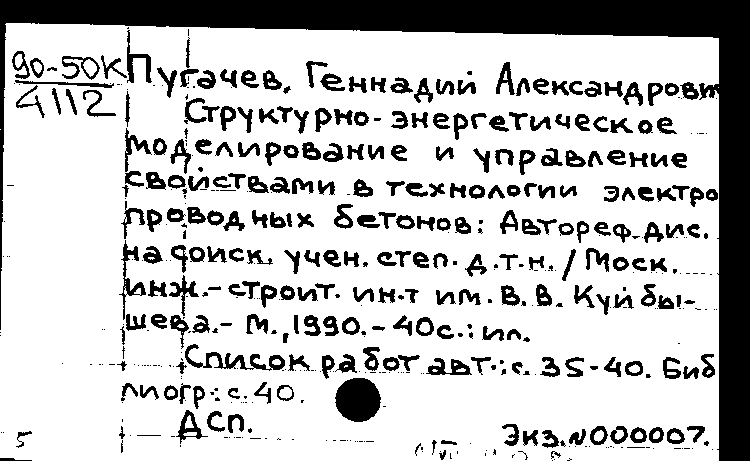 90-50К Пугачев, Геннадий Александрови
4112 Структурно-энергетическое
моделирование и управление
свойствами в технологии электро
проводных бетонов: Автореф. дис.
на соиск. учен. степ. д.т.н. / Моск.
инж.-строит. ин-т им. В. В. Куйбы-
шева.- М., 1990.- 40с.: ил.
Список работ авт.: с. 35-40. Биб
лиогр.: с. 40.
ДСП.
5 Экз.N000007.